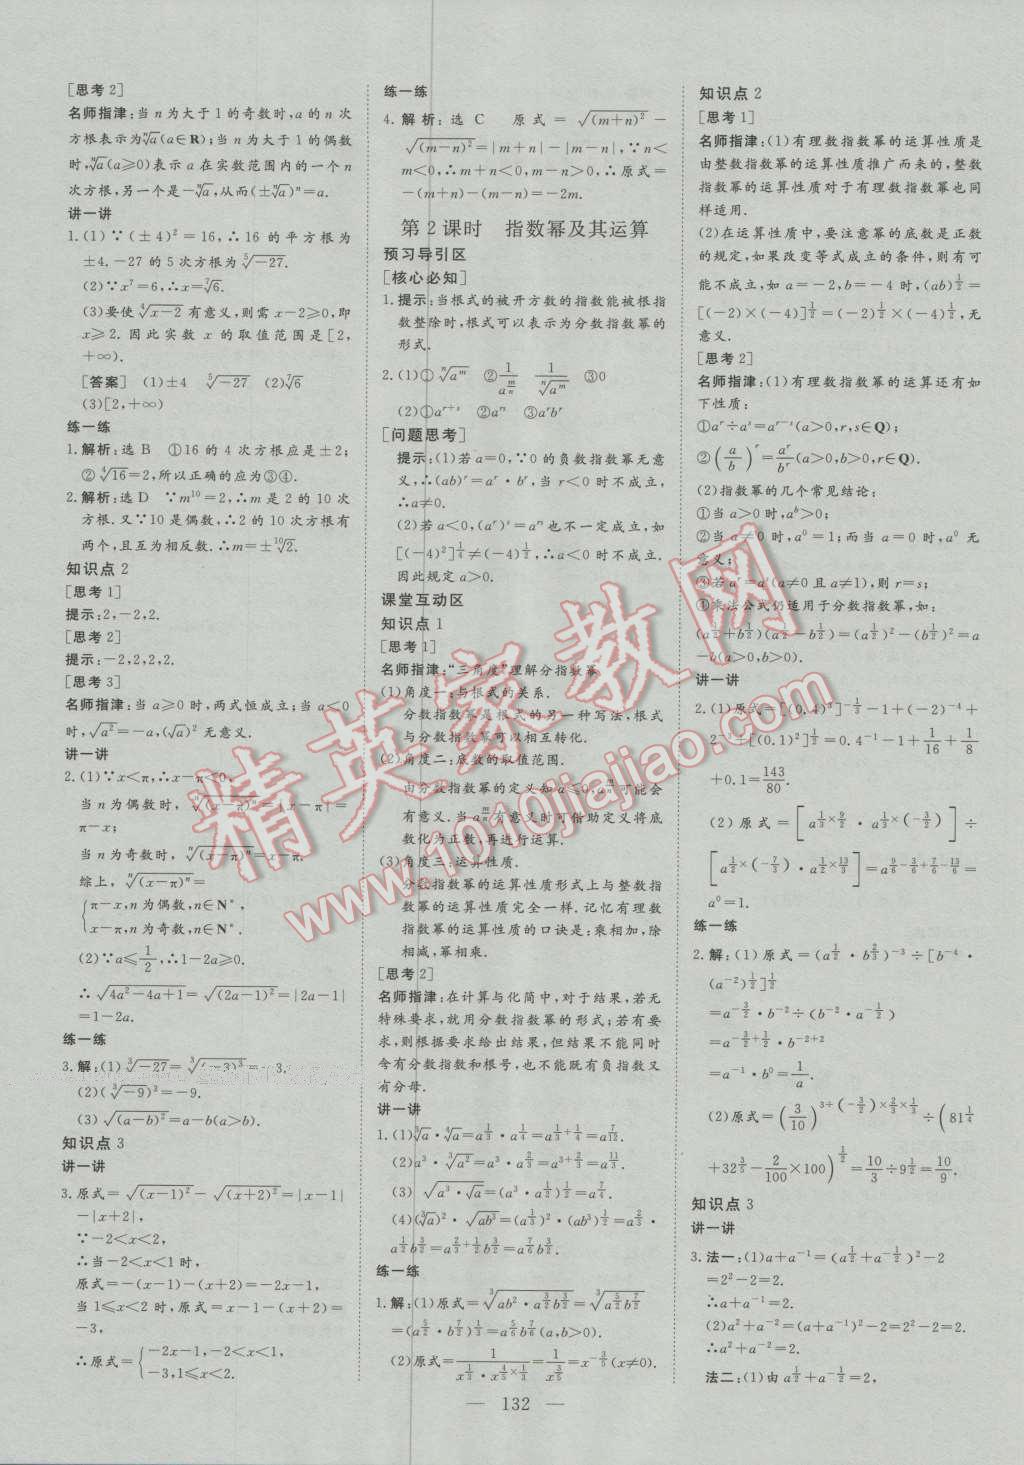 [思考2]
名师指津:当 n 为大于 1 的奇数时,a 的 n 次
方根表示为ⁿ√a(a∈R);当 n 为大于 1 的偶数
时,ⁿ√a(a⩾0)表示 a 在实数范围内的一个 n
次方根,另一个是-ⁿ√a,从而(±ⁿ√a)ⁿ=a.
讲一讲
1.(1)∵(±4)²=16,∴16 的平方根为
±4.-27 的 5 次方根是⁵√-27.
(2)∵x⁷=6,∴x=⁷√6.
(3)要使⁴√x-2 有意义,则需 x-2⩾0,即
x⩾2. 因此实数 x 的取值范围是[2,
+∞).
[答案] (1)±4 ⁵√-27 (2)⁷√6
(3)[2,+∞)
练一练
1.解析:选 B ①16 的 4 次方根应是±2;
②⁴√16=2,所以正确的应为③④.
2.解析:选 D ∵m¹⁰=2,∴m 是 2 的 10 次
方根.又∵10 是偶数,∴2 的 10 次方根有
两个,且互为相反数.∴m=±¹⁰√2.
知识点 2
[思考1]
提示:2,-2,2.
[思考2]
提示:-2,2,2,2.
[思考3]
名师指津:当 a⩾0 时,两式恒成立;当 a<0
时,√a²=-a,(√a)²无意义.
讲一讲
2.(1)∵x<π,∴x-π<0,
当 n 为偶数时,ⁿ√(x-π)ⁿ=|x-π|=
π-x;
当 n 为奇数时,ⁿ√(x-π)ⁿ=x-π.
综上,ⁿ√(x-π)ⁿ=
{π-x,n 为偶数,n∈N*,
x-π,n 为奇数,n∈N*.
(2)∵a⩽1/2,∴1-2a⩾0.
∴√(4a²-4a+1)=√(2a-1)²=|2a-1|
=1-2a.
练一练
3.解:(1)³√-27=³√(-3)³=-3.
(2)(³√-9)³=-9.
(3)√(a-b)²=a-b(a>b).
知识点 3
讲一讲
3.原式=√(x-1)²-√(x+2)²=|x-1|
-|x+2|,
∵-2<x<2,
∴当-2<x<1 时,
原式=-(x-1)-(x+2)=-2x-1,
当 1⩽x<2 时,原式=x-1-(x+2)=
-3,
∴原式={-2x-1,-2<x<1,
-3,1⩽x<2.
练一练
4.解析:选 C 原式=√(m+n)²-
√(m-n)²=|m+n|-|m-n|,∵n<
m<0,∴m+n<0,m-n>0,∴原式=
-(m+n)-(m-n)=-2m.
第 2 课时 指数幂及其运算
预习导引区
[核心必知]
1.提示:当根式的被开方数的指数能被根指
数整除时,根式可以表示为分数指数幂的
形式.
2.(1)①ⁿ√aᵐ ②1/a^(m/n) 1/ⁿ√aᵐ ③0
(2)①a^(r+s) ②a^(rs) ③aʳbʳ
[问题思考]
提示:(1)若 a=0,∵0 的负数指数幂无意
义,∴(ab)ʳ=aʳ·bʳ,当 r<0 时不成立,
∴a≠0.
(2)若 a<0,(aʳ)ˢ=a^(rs)也不一定成立,如
[(-4)²]^(1/4)≠(-4)^(1/2),∴a<0 时不成立.
因此规定 a>0.
课堂互动区
知识点 1
[思考1]
名师指津:“三角度”理解分指数幂
(1)角度一:与根式的关系.
分数指数幂是根式的另一种写法,根式
与分数指数幂可以相互转化.
(2)角度二:底数的取值范围.
由分数指数幂的定义知 a⩽0,a^(m/n)可能会
有意义.当 a^(m/n)有意义时可借助定义将底
数化为正数,再进行运算.
(3)角度三:运算性质.
分数指数幂的运算性质形式上与整数指
数幂的运算性质完全一样.记忆有理数
指数幂的运算性质的口诀是:乘相加,除
相减,幂相乘.
[思考2]
名师指津:在计算与化简中,对于结果,若无
特殊要求,就用分数指数幂的形式;若有要
求,则根据要求给出结果,但结果不能同时
含有分数指数和根号,也不能既有负指数又
有分母.
讲一讲
1.(1)³√a·⁴√a=a^(1/3)·a^(1/4)=a^(1/3+1/4)=a^(7/12).
(2)a³·³√a²=a³·a^(2/3)=a^(3+2/3)=a^(11/3).
(3)√(a³·√a)=(a³·a^(1/2))^(1/2)=a^(7/4).
(4)(³√a)²·√ab³=(a^(1/3))²·(ab³)^(1/2)=a^(2/3)·
a^(1/2)b^(3/2)=a^(2/3+1/2)b^(3/2)=a^(7/6)b^(3/2).
练一练
1.解:(1)原式=³√(ab²·a^(3/2)b^(3/2))=³√(a^(5/2)b^(7/2))
=(a^(5/2)·b^(7/2))^(1/3)=a^(5/6)b^(7/6)(a,b>0).
(2)原式=1/(x^(1/3)·x^(4/5×1/3))=1/x^(3/5)=x^(-3/5)(x≠0).
知识点 2
[思考1]
名师指津:(1)有理数指数幂的运算性质是
由整数指数幂的运算性质推广而来的,整数
指数幂的运算性质对于有理数指数幂也同
样适用.
(2)在运算性质中,要注意幂的底数是正数
的规定,如果改变等式成立的条件,则有可
能不成立,如 a=-2,b=-4 时,(ab)^(1/2)=
[(-2)×(-4)]^(1/2)=(-2)^(1/2)×(-4)^(1/2),无
意义.
[思考2]
名师指津:(1)有理数指数幂的运算还有如
下性质:
①aʳ÷aˢ=a^(r-s)(a>0,r,s∈Q).
②(a/b)ʳ=aʳ/bʳ(a>0,b>0,r∈Q).
(2)指数幂的几个常见结论:
①当 a>0 时,aᵇ>0;
②当 a≠0 时,a⁰=1;而当 a=0 时,a⁰ 无
意义;
③若 aʳ=aˢ(a≠0 且 a≠1),则 r=s;
④乘法公式仍适用于分数指数幂,如:
(a^(1/2)+b^(1/2))(a^(1/2)-b^(1/2))=(a^(1/2))²-(b^(1/2))²=a
-b(a>0,b>0).
讲一讲
2.(1)原式=[(0.4)³]^(-1/3)-1+(-2)⁻⁴+
2⁻³+[(0.1)²]^(1/2)=0.4⁻¹-1+1/16+1/8
+0.1=143/80.
(2)原式=[a^(1/3×9/2)·a^(1/3×(-3/2))]÷
[a^(1/2×(-7/3))·a^(1/2×13/3)]=a^(9/6-3/6+7/6-13/6)=
a⁰=1.
练一练
2.解:(1)原式=(a^(1/2)·b^(2/3))⁻³÷[b⁻⁴·
(a⁻¹)]^(1/2)
=a^(-3/2)·b⁻²÷(b⁻²·a^(-1/2))
=a^(-3/2+1/2)·b^(-2+2)
=a⁻¹·b⁰=1/a.
(2)原式=(3/10)^(3÷(-3/2)×2/3×1/3)÷(81^(1/4)
+32^(3/5)-2/100×100)^(1/2)=10/3÷9^(1/2)=10/9.
知识点 3
讲一讲
3.法一:(1)a+a⁻¹=(a^(1/2)+a^(-1/2))²-2
=2²-2=2.
∴a+a⁻¹=2.
(2)a²+a⁻²=(a+a⁻¹)²-2=2²-2=2.
∴a²+a⁻²=2.
法二:(1)由 a^(1/2)+a^(-1/2)=2,
— 132 —
精英家教网
www.1010jiajiao.com